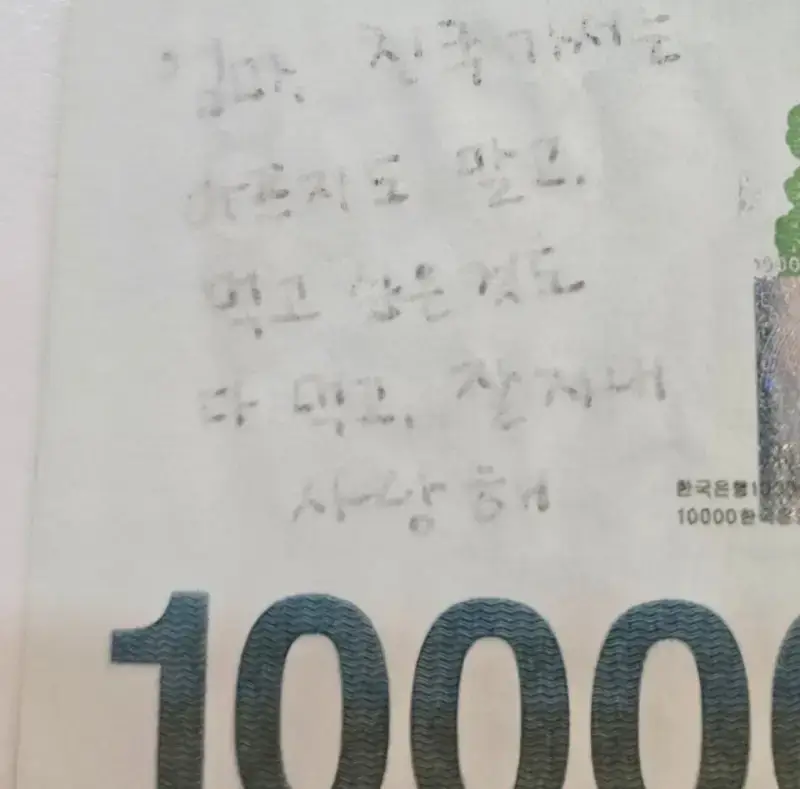 엄마, 천국가서는
아프지도 말고,
먹고 싶은 것도
다 먹고, 잘 지내
사랑해
한국은행10
10000한국은
10000